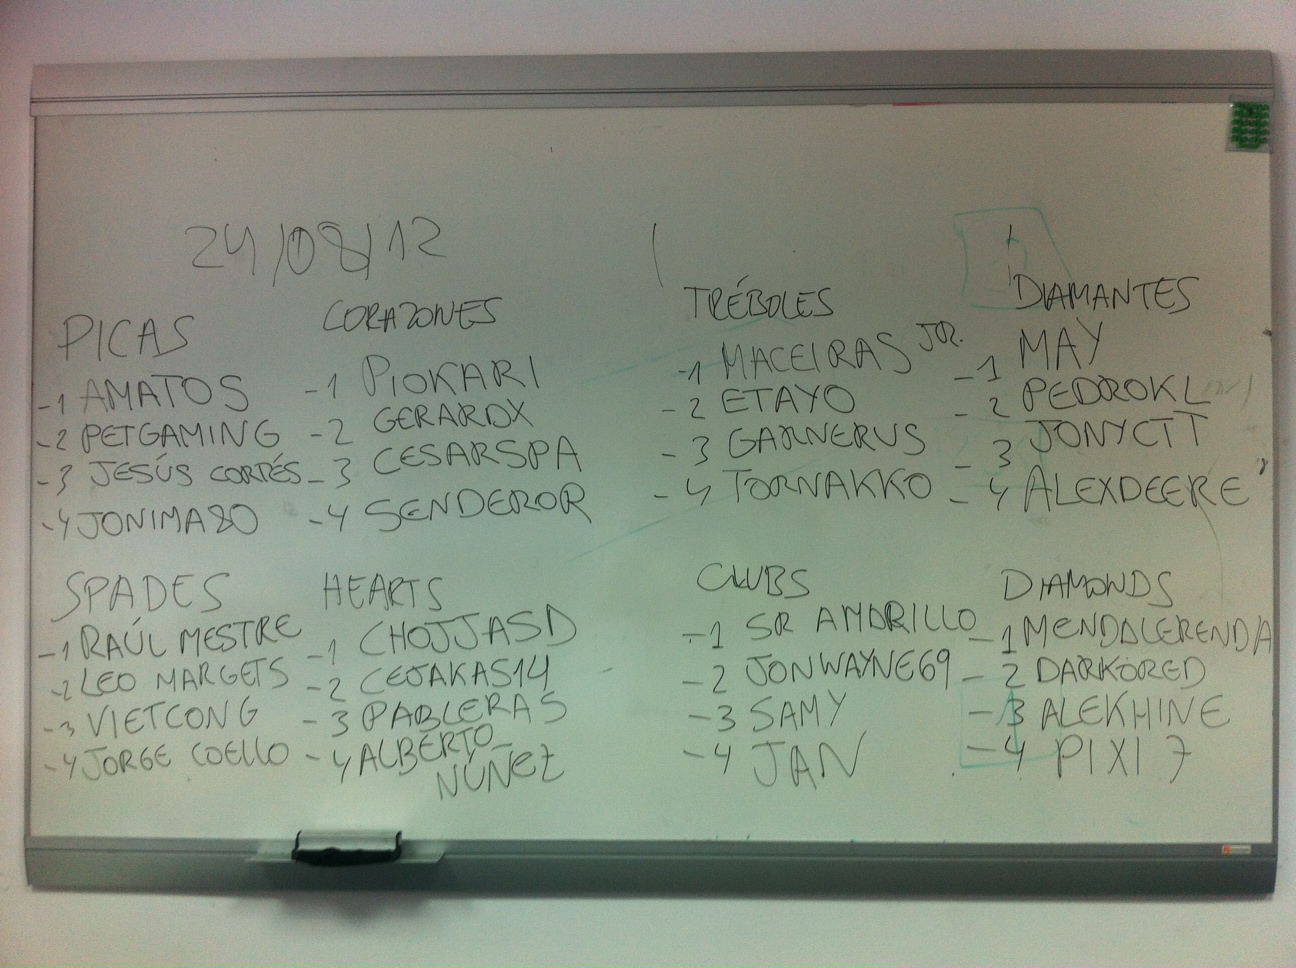 24/08/12
PICAS
-1 AMATOS
-2 PETGAMING
-3 JESÚS CORTÉS
-4 JONIMA80
CORAZONES
-1 PIOKARI
-2 GERARDX
-3 CESARSPA
-4 SENDEROR
TRÉBOLES
-1 MACEIRAS JOR.
-2 ETAYO
-3 GARNERUS
-4 TORNAKKO
DIAMANTES
-1 MAY
-2 PEDROKL
-3 JONYCTT
-4 ALEXDEERE
SPADES
-1 RAÚL MESTRE
-2 LEO MARGETS
-3 VIETCONG
-4 JORGE COELLO
HEARTS
-1 CHOJJASD
-2 CEJAKAS14
-3 PABLERAS
-4 ALBERTO
NÚÑEZ
CLUBS
-1 SR AMARILLO
-2 JONWAYNE69
-3 SAMY
-4 JAN
DIAMONDS
-1 MENDALERENDA
-2 DARKORED
-3 ALEKHINE
-4 PIXI 7